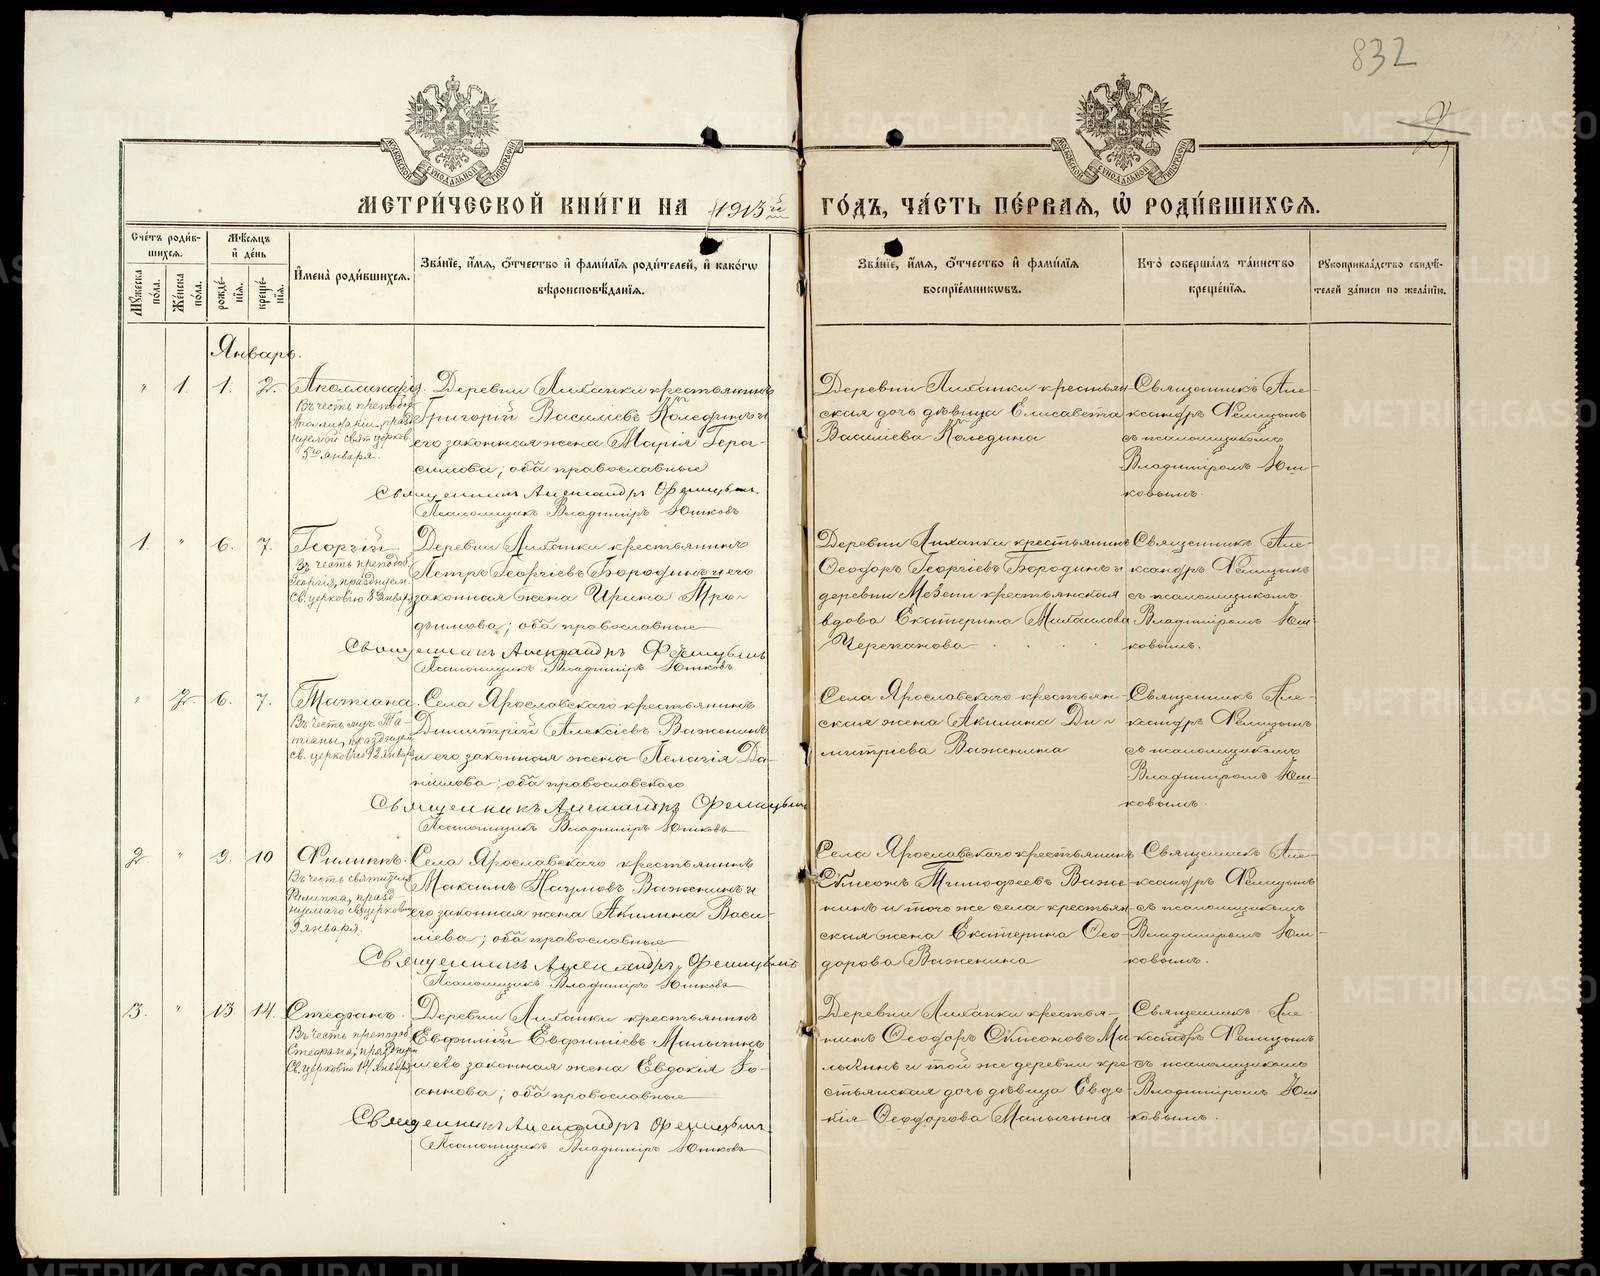 832
МЕТРИ́ЧЕСКОЙ КНИ́ГИ НА 1913й ГО́ДЪ, ЧА́СТЬ ПЕ́РВАЯ, Ѡ РОДИ́ВШИХСЯ.
Сче́тъ роди́в-
шихся.
Мѣ́сяцъ
и де́нь
Мꙋ́жеска по́ла.
Же́нска по́ла.
рожде́-
нїя.
креще́-
нїя.
И҆мена̀ роди́вшихся.
Зва́нїе, и҆́мя, ѻ҆́тчество и҆ фами́лїя роди́телей, и҆ како́гѡ
вѣроисповѣ́данїя.
Зва́нїе, и҆́мя, ѻ҆́тчество и҆ фами́лїя
воспрїе́мникѡвъ.
Кто̀ соверша́лъ та́инство
креще́нїя.
Рꙋкоприкла́дство свидѣ́-
телей за́писи по жела́нїю.
Январь.
" 1. 1. 2.
Аполлинарія.
Въ честь преподоб.
Аполинаріи, празд-
нуемой свят. церков.
5го января.
Деревни Лиханки крестьянинъ
Григорій Василіевъ Коледин и
его законная жена Марія Гера-
симова; оба православные
Священникъ Александръ Фелицынъ.
Псаломщикъ Владиміръ Юшковъ
Деревни Лиханки крестьян-
ская дочь дѣвица Елисавета
Василіева Коледина
Священникъ Але-
ксандръ Фелицынъ
съ псаломщикомъ
Владиміромъ Юш-
ковымъ.
1. " 6. 7.
Георгій
Въ честь преподоб.
Георгія, празднуем.
св. церковію 8го январ.
Деревни Лиханки крестьянинъ
Петръ Георгіевъ Бородинъ и его
законная жена Ирина Тро-
фимова; оба православные
Священникъ Александръ Фелицынъ
Псаломщикъ Владиміръ Юшковъ
Деревни Лиханки крестьянинъ
Ѳеодоръ Георгіевъ Бородинъ и
деревни Мезени крестьянская
вдова Екатерина Михаилова
Черепанова
Священникъ Але-
ксандръ Фелицынъ
съ псаломщикомъ
Владиміромъ Юш-
ковымъ.
" 2. 6. 7.
Татіана.
Въ честь муч. Та-
тіаны, празднуем.
св. церковію 12 января
Села Ярославскаго крестьянинъ
Димитрій Алексіевъ Важенинъ
и его законная жена Пелагія Да-
ніилова; оба православнаго
Священникъ Александръ Фелицынъ
Псаломщикъ Владиміръ Юшковъ
Села Ярославскаго крестьян-
ская жена Акилина Ди-
митріева Важенина
Священникъ Але-
ксандръ Фелицынъ
съ псаломщикомъ
Владиміромъ Юш-
ковымъ.
2. " 9. 10
Филиппъ.
Въ честь святителя
Филиппа, празд-
нуемаго св. церковію
9 января.
Села Ярославскаго крестьянинъ
Максимъ Наумовъ Важенинъ и
его законная жена Акилина Васи-
ліева; оба православные
Священникъ Александръ Фелицынъ
Псаломщикъ Владиміръ Юшковъ
Села Ярославскаго крестьянинъ
Сѷмеонъ Тимоѳеевъ Важе-
нинъ и того же села крестьян-
ская жена Екатерина Ѳео-
дорова Важенина
Священникъ Але-
ксандръ Фелицынъ
съ псаломщикомъ
Владиміромъ Юш-
ковымъ.
3. " 13 14.
Стефанъ.
Въ честь преподоб.
Стефана, празднуем.
св. церковію 14 января
Деревни Лиханки крестьянинъ
Евфимій Евфиміевъ Малыгинъ
и его законная жена Евдокія Іо-
аннова; оба православные
Священникъ Александръ Фелицынъ
Псаломщикъ Владиміръ Юшковъ
Деревни Лиханки крестья-
нинъ Ѳеодоръ Сѷмеоновъ Ма-
лыгинъ и той же деревни кре-
стьянская дочь дѣвица Евдо-
кія Ѳеодорова Малыгина
Священникъ Але-
ксандръ Фелицынъ
съ псаломщикомъ
Владиміромъ Юш-
ковымъ.
METRIKI.GASO-URAL.RU